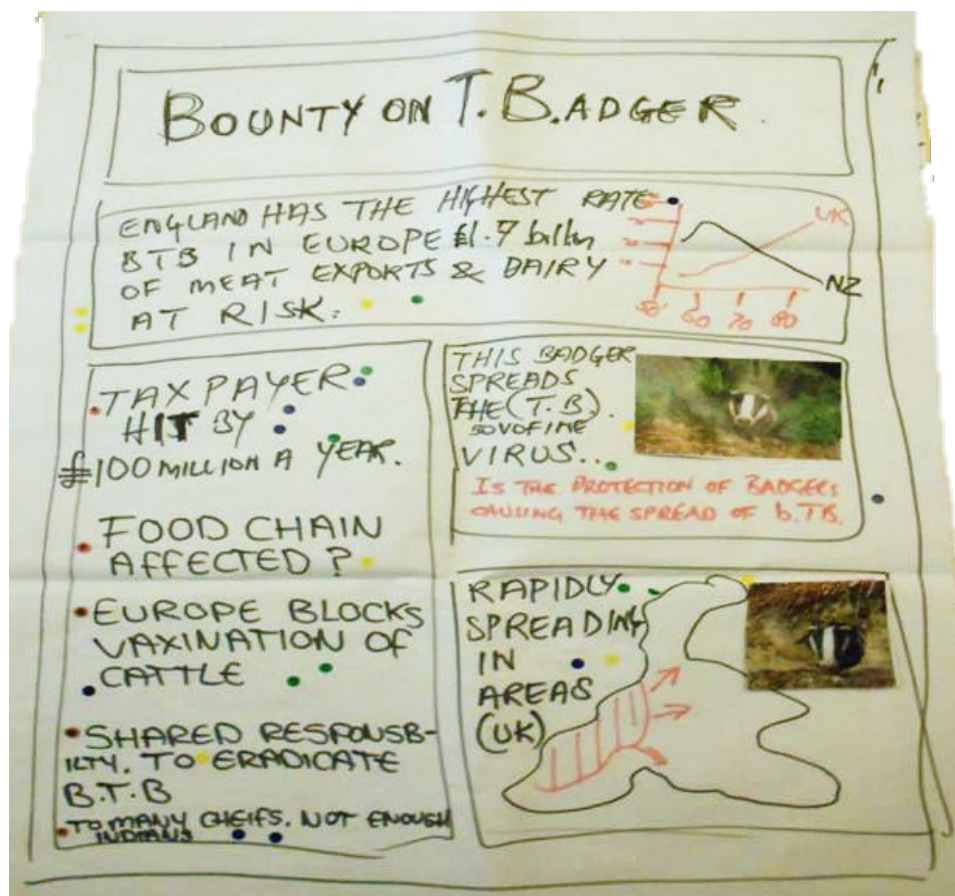 BOUNTY ON T. BADGER.
ENGLAND HAS THE HIGHEST RATE
BTB IN EUROPE £1.7 billion
OF MEAT EXPORTS & DAIRY
AT RISK.
UK
NZ
50' 60 70 80
TAX PAYER
HIT BY
£100 MILLION A YEAR.
FOOD CHAIN
AFFECTED?
EUROPE BLOCKS
VAXINATION OF
CATTLE
SHARED RESPONSB-
ILTY. TO ERADICATE
B.T.B
TO MANY CHEIFS. NOT ENOUGH
INDIANS
THIS BADGER
SPREADS
THE (T.B).
BOVOFINE
VIRUS...
IS THE PROTECTION OF BADGERS
CAUSING THE SPREAD OF b.TB.
RAPIDLY
SPREADING
IN
AREAS
(UK)